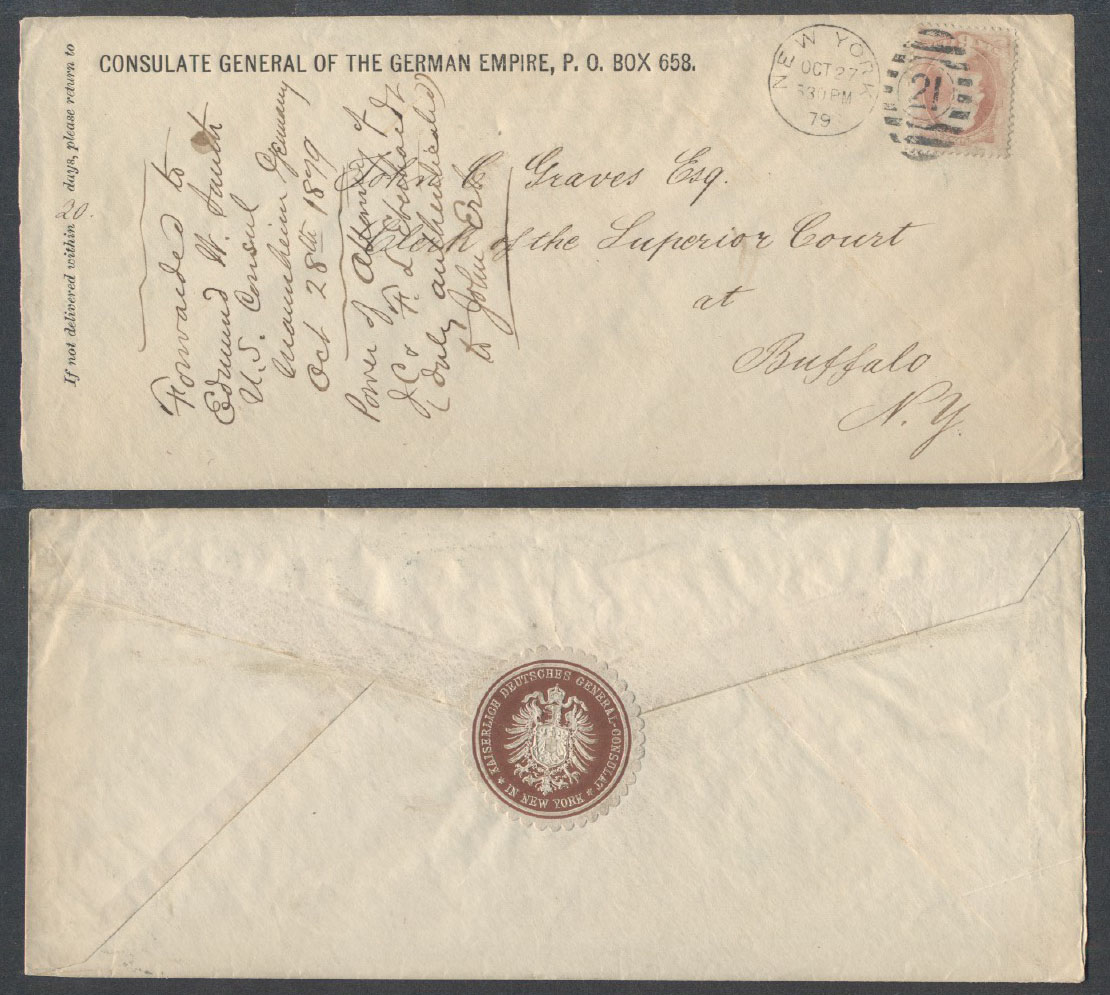 CONSULATE GENERAL OF THE GERMAN EMPIRE, P. O. BOX 658.
If not delivered within 20. days, please return to
NEW YORK
OCT 27
530 PM
79
21
John C. Graves Esq.
Clerk of the Superior Court
at
Buffalo
N. Y.
Forwarded to
Edmund W. Smith
U.S. Consul
Mannheim Germany
Oct 28th 1879
Power of Attorney of
J.C. & F. L. Eberhardt
(duly authenticated)
to John Erb
KAISERLICH DEUTSCHES GENERAL-CONSULAT
* IN NEW YORK *